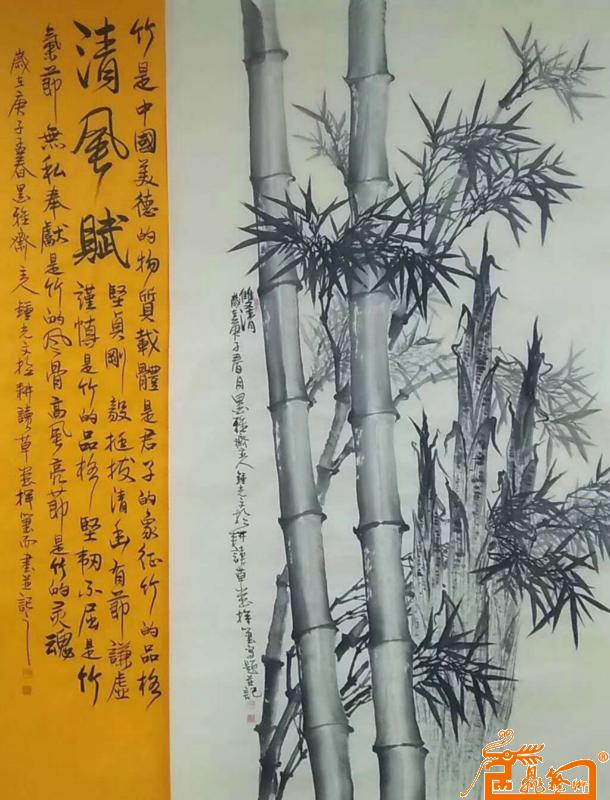 清風賦
竹是中國美德的物質載體是君子的象征竹的品格
堅貞剛毅挺拔清幽有節謙虛
謹慎是竹的品格堅韌不屈是竹
氣節無私奉獻是竹的风骨高風亮節是竹的灵魂
歲在庚子孟春墨雅齋主人鍾光文於耕讀草堂揮筆而書並記之
歲在庚子春月墨雅齋主人鍾光文於耕讀草堂揮筆寫題並記